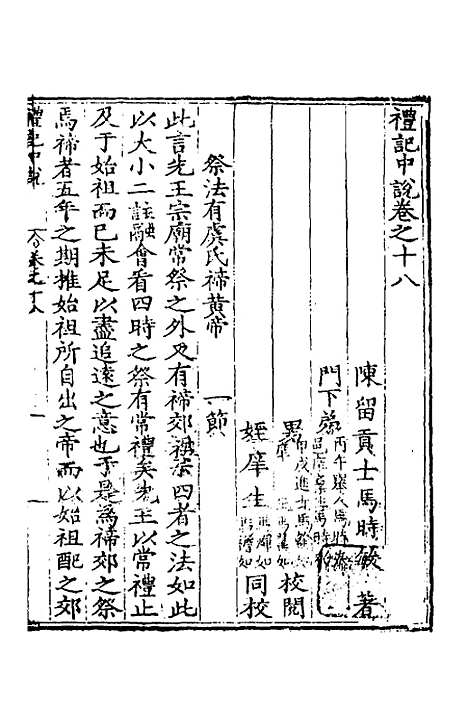 禮記中說卷之十八
陳留貢士馬時敏著
門下弟
丙午舉人馬
校閱
甲戌進士馬
姪庠生
同校
祭法有虞氏禘黃帝 一節
此言先王宗廟常祭之外又有禘郊祖宗四者之法如此
以大小二註融會看四時之祭有常禮矣先王以常禮止
及于始祖而已未足以盡追遠之意也于是為禘郊之祭
焉禘者五年之期推始祖所自出之帝而以始祖配之郊
禮記中說
卷之十八
一